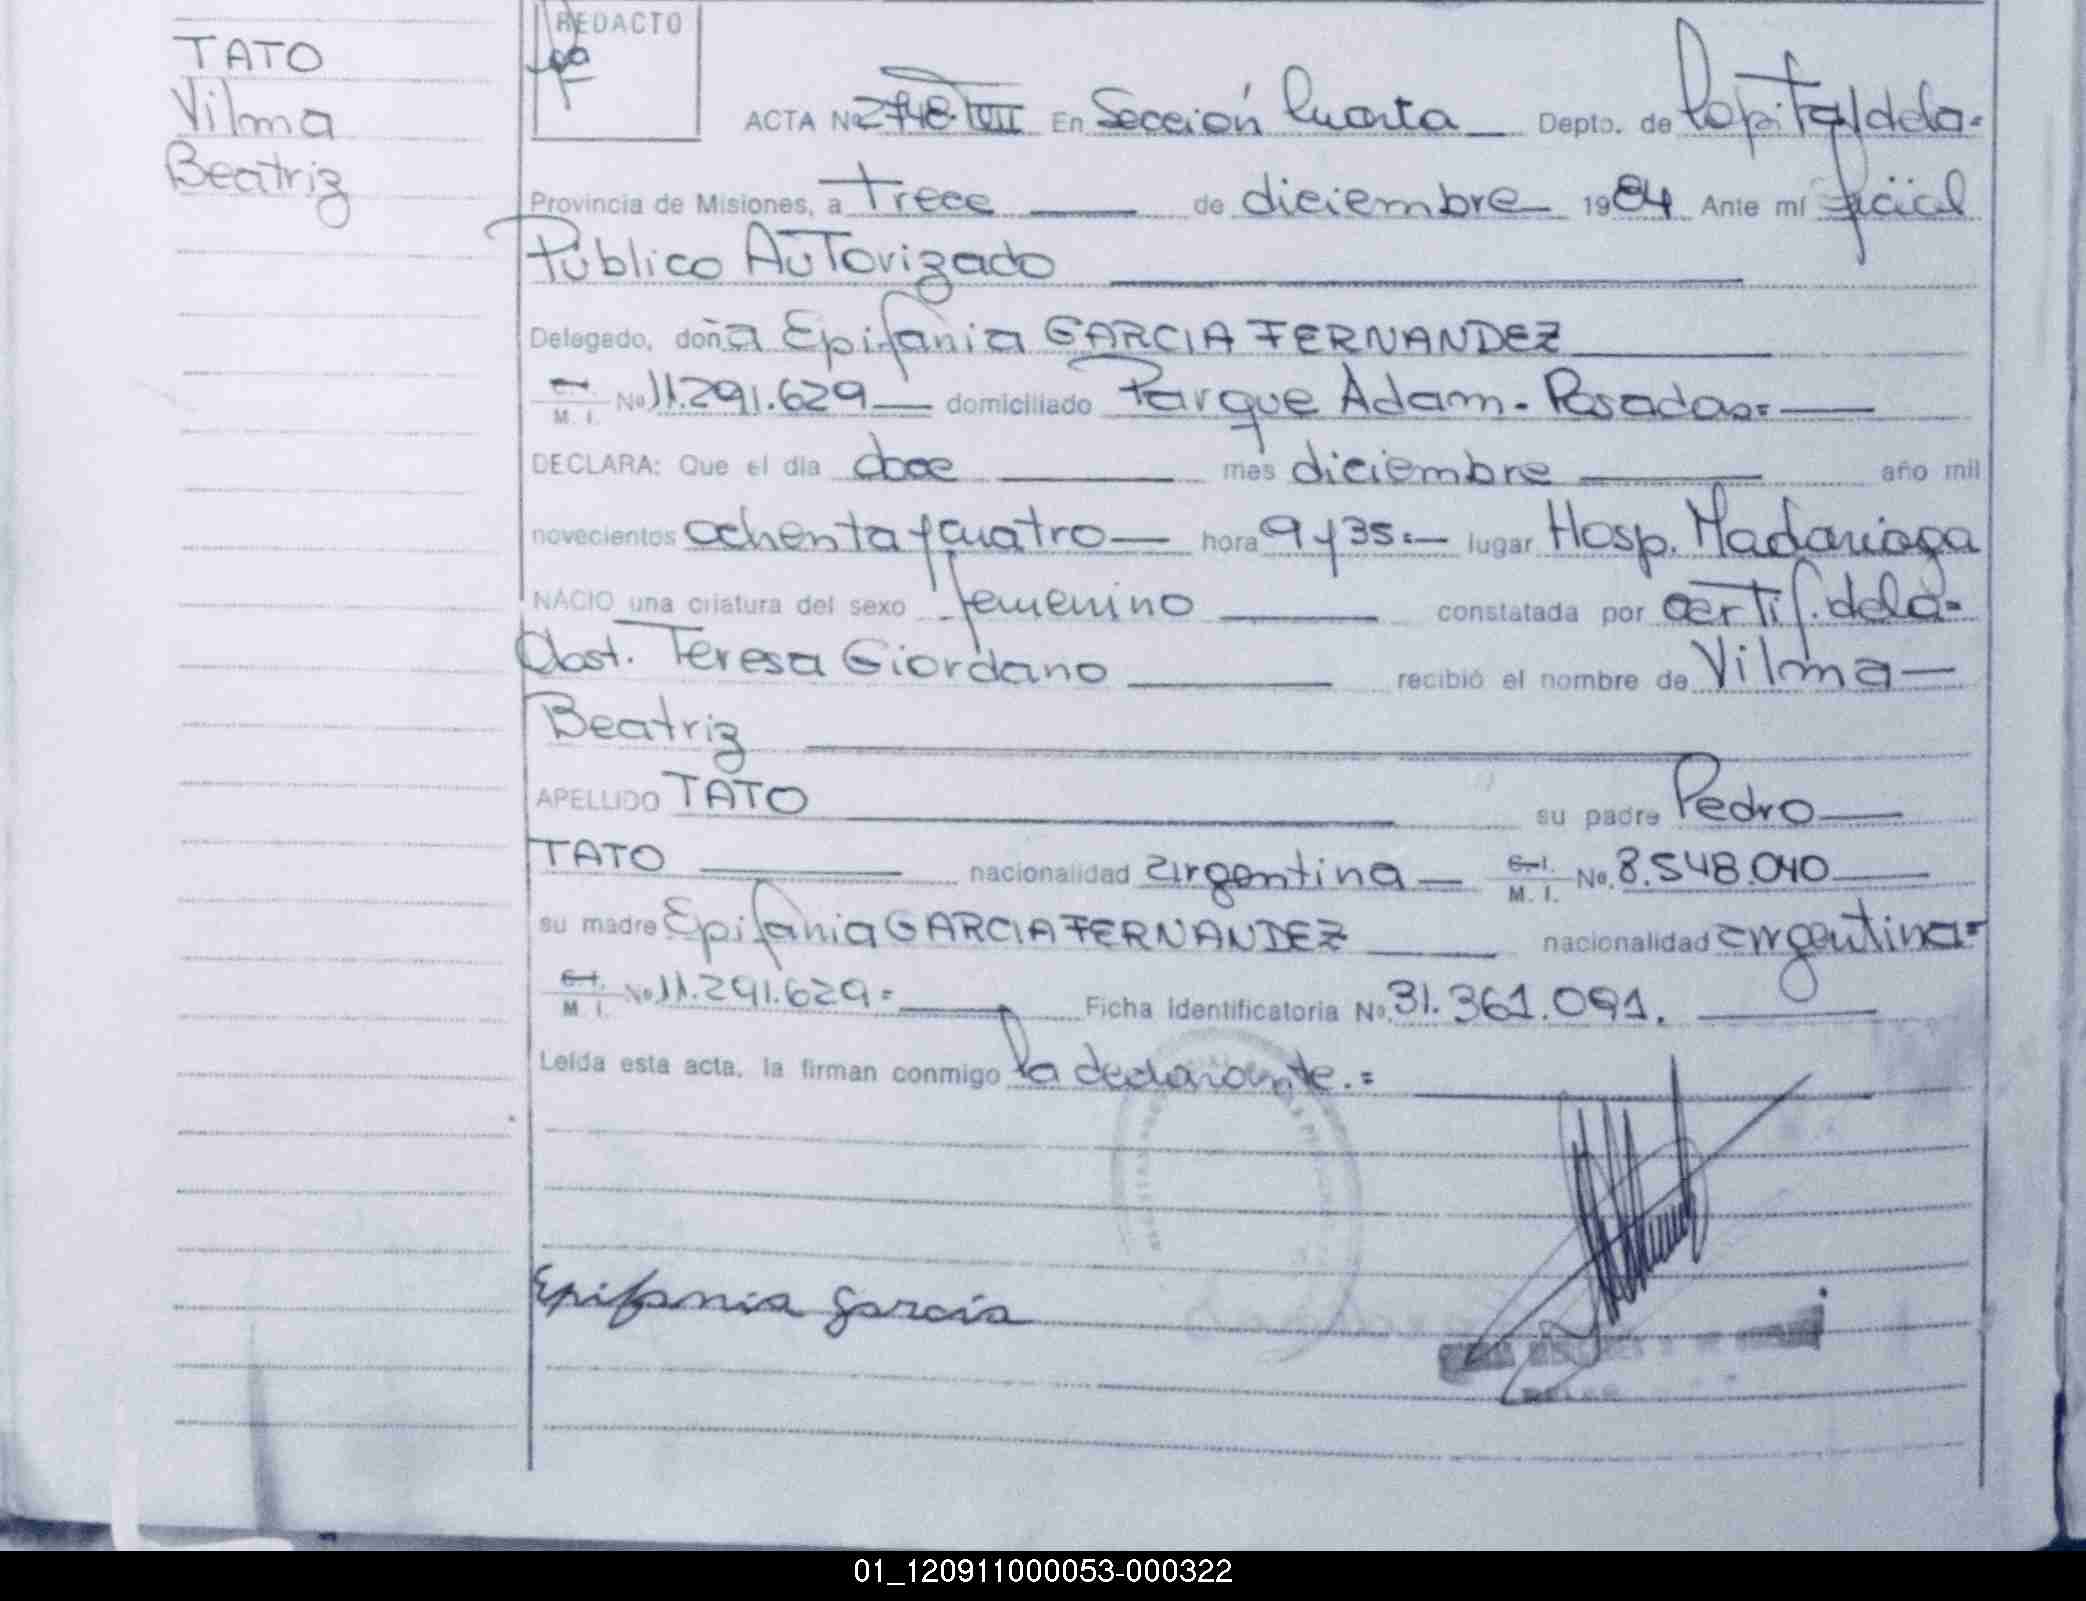 TATO
Vilma
Beatriz
REDACTO
ACTA Nº 2748 TVIII En Sección Cuarta Depto. de Capital dela=
Provincia de Misiones, a Trece de diciembre 1984 Ante mí oficial
Público AuTorizado
Delegado, doña Epifania GARCIA FERNANDEZ
C. I. M. I. Nº 11.291.629 domiciliado Parque Adam - Posadas=
DECLARA: Que el día doce mes diciembre año mil
novecientos ochenta y cuatro hora 9 y 35 = lugar Hosp. Madariaga
NACIO una criatura del sexo femenino constatada por certif. dela=
Obst. Teresa Giordano recibió el nombre de Vilma
Beatriz
APELLIDO TATO su padre Pedro
TATO nacionalidad argentina C. I. M. I. Nº 8.548.040
su madre Epifania GARCIA FERNANDEZ nacionalidad argentina=
C. I. M. I. Nº 11.291.629= Ficha Identificatoria Nº 31.361.091.
Leída esta acta, la firman conmigo la declarante.=
Epifania Garcia
01_120911000053-000322